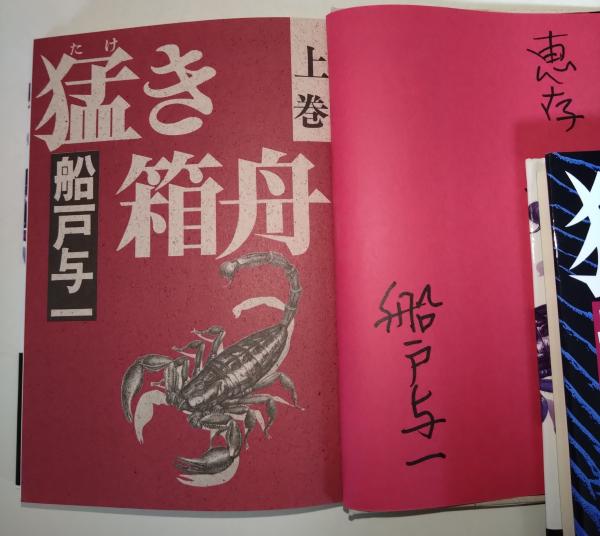 たけ
猛き
箱舟
上巻
船戸与一
恵存
船戸与一
猛